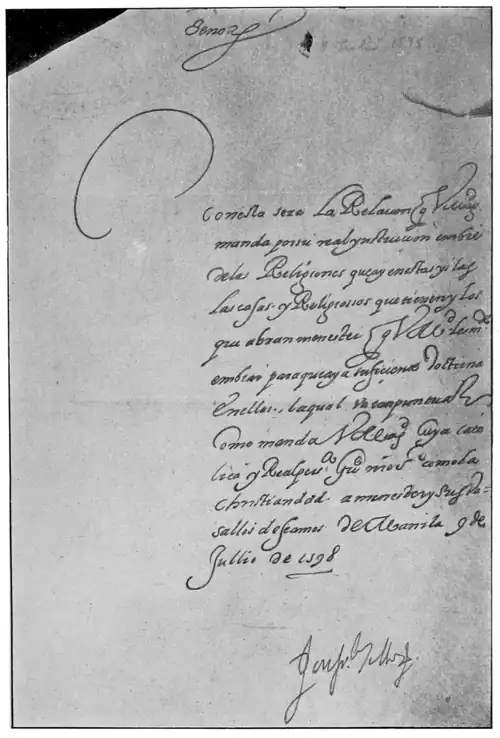 Señor
Con esta sera La Relacion q V. mag.
manda por su real ynstrucion embie
de las Religiones que ay en estas yslas
Las casas y Religiossos que tienen y los
que abran menester q V. mag.d
embiar para que aya suficiente doctrina
En ellas, la qual va con puntual
Como manda V. mag.d Cuya cato
lica y Real per.a G.e n̄ro s.r como la
christiandad a menester y sus va=
sallos deseamos de Manila 9 de
Jullio de 1598